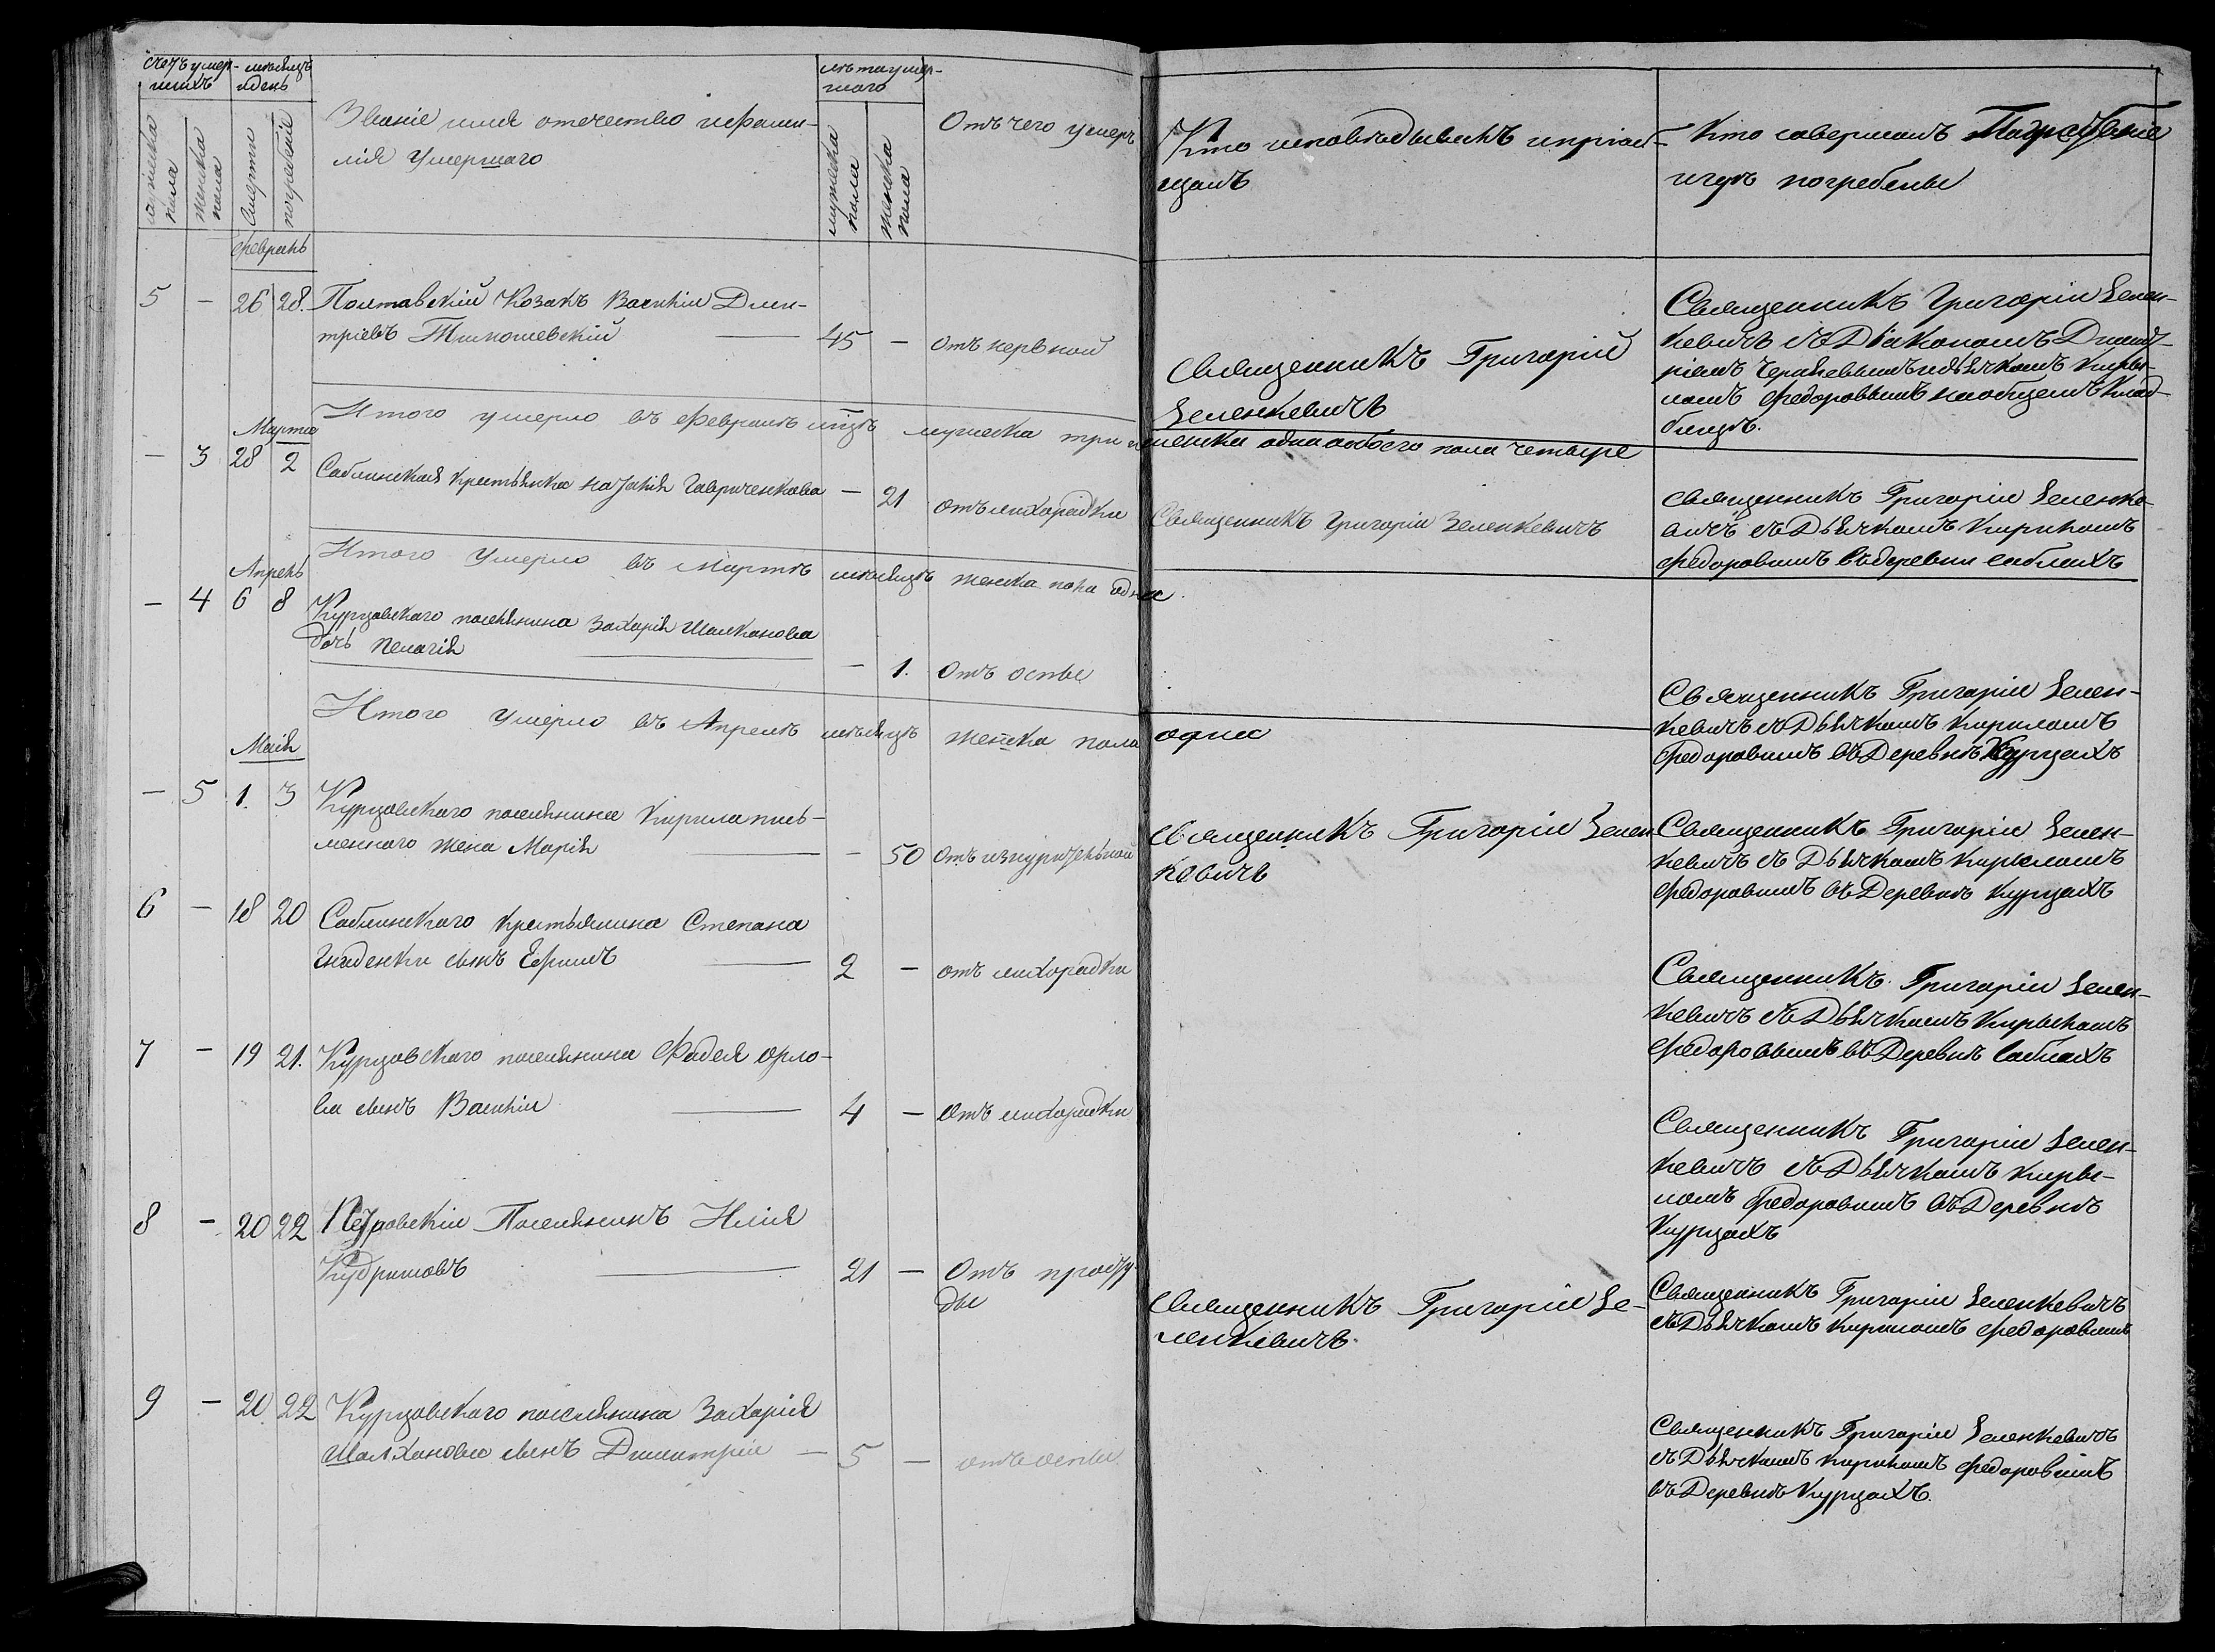 счетъ умер-
шихъ
мѣсяцъ
и день
лѣта умер-
шаго
мужеска
пола
женска
пола
смерти
погребенія
Званіе имя отечество и фами-
лія умершаго
мужеска
пола
женска
пола
Отъ чего умеръ
Кто исповѣдывалъ и пріоб-
щалъ
Кто совершалъ Погребеніе
и гдѣ погребены
Февраль
5 — 26 28. Полтавскій Козакъ Василій Дми-
тріевъ Тимошевскій — 45 — Отъ нервной
Священникъ Григорій
Зеленкевичъ
Священникъ Григорій Зелен-
кевичъ съ Діакономъ Димит-
ріемъ и дьячкомъ Киры-
ломъ Федоровымъ на общемъ клад-
бищѣ.
Итого умерло въ Февралѣ мцѣ мужеска три женска одна обоего пола четыре
Марта
— 3 28 2 Саблинская крестьянка Гавриченкова — 21 отъ лихорадки
Священникъ Григорій Зеленкевичъ
Священникъ Григорій Зеленке-
вичъ съ Дьячкомъ Кириломъ
Федоровымъ въ деревни Саблахъ
Итого умерло въ Мартѣ мѣсяцѣ женска пола одна
Апрель
— 4 6 8 Курцовскаго поселянина Захарія Шалханова
дочь Пелагія — 1. Отъ оспы
Священникъ Григорій Зелен-
кевичъ съ Дьячкомъ Кириломъ
Федоровымъ въ Деревнѣ Курцахъ
Итого умерло въ Апрелѣ мѣсяцѣ женска пола одна
Маія
— 5 1. 3 Курцовскаго поселянина Кирила Пись-
меннаго жена Марія — 50 Отъ изнурительной
Священникъ Григорій Зелен
кевичъ
Священникъ Григорій Зелен-
кевичъ съ Дьячкомъ Кирыломъ
Федоровымъ въ Деревнѣ Курцахъ
6 — 18 20 Саблинскаго крестьянина Степана
Гниденки сынъ Ефимъ 2 — отъ лихорадки
Священникъ Григорій Зелен-
кевичъ съ Дьячкомъ Кирыломъ
Федоровымъ въ Деревнѣ Саблахъ
7 — 19 21. Курцовскаго поселянина Фадея Орло-
ва сынъ Василій 4 — Отъ лихорадки
Священникъ Григорій Зелен-
кевичъ съ Дьячкомъ Киры-
ломъ Федоровымъ въ Деревнѣ
Курцахъ
8 — 20 22 Поселянинъ Илія
Кудришовъ 21 — Отъ просту-
ды
Священникъ Григорій Зе-
ленкевичъ.
Священникъ Григорій Зеленкевичъ
съ Дьячкомъ Кириломъ Федоровымъ
9 — 20 22 Курцовскаго поселянина Захарія
Шалханова сынъ Димитрій — 5 — отъ оспы
Священникъ Григорій Зеленкевичъ
съ Дьячкомъ Кириломъ Федоровымъ
въ Деревнѣ Курцахъ.